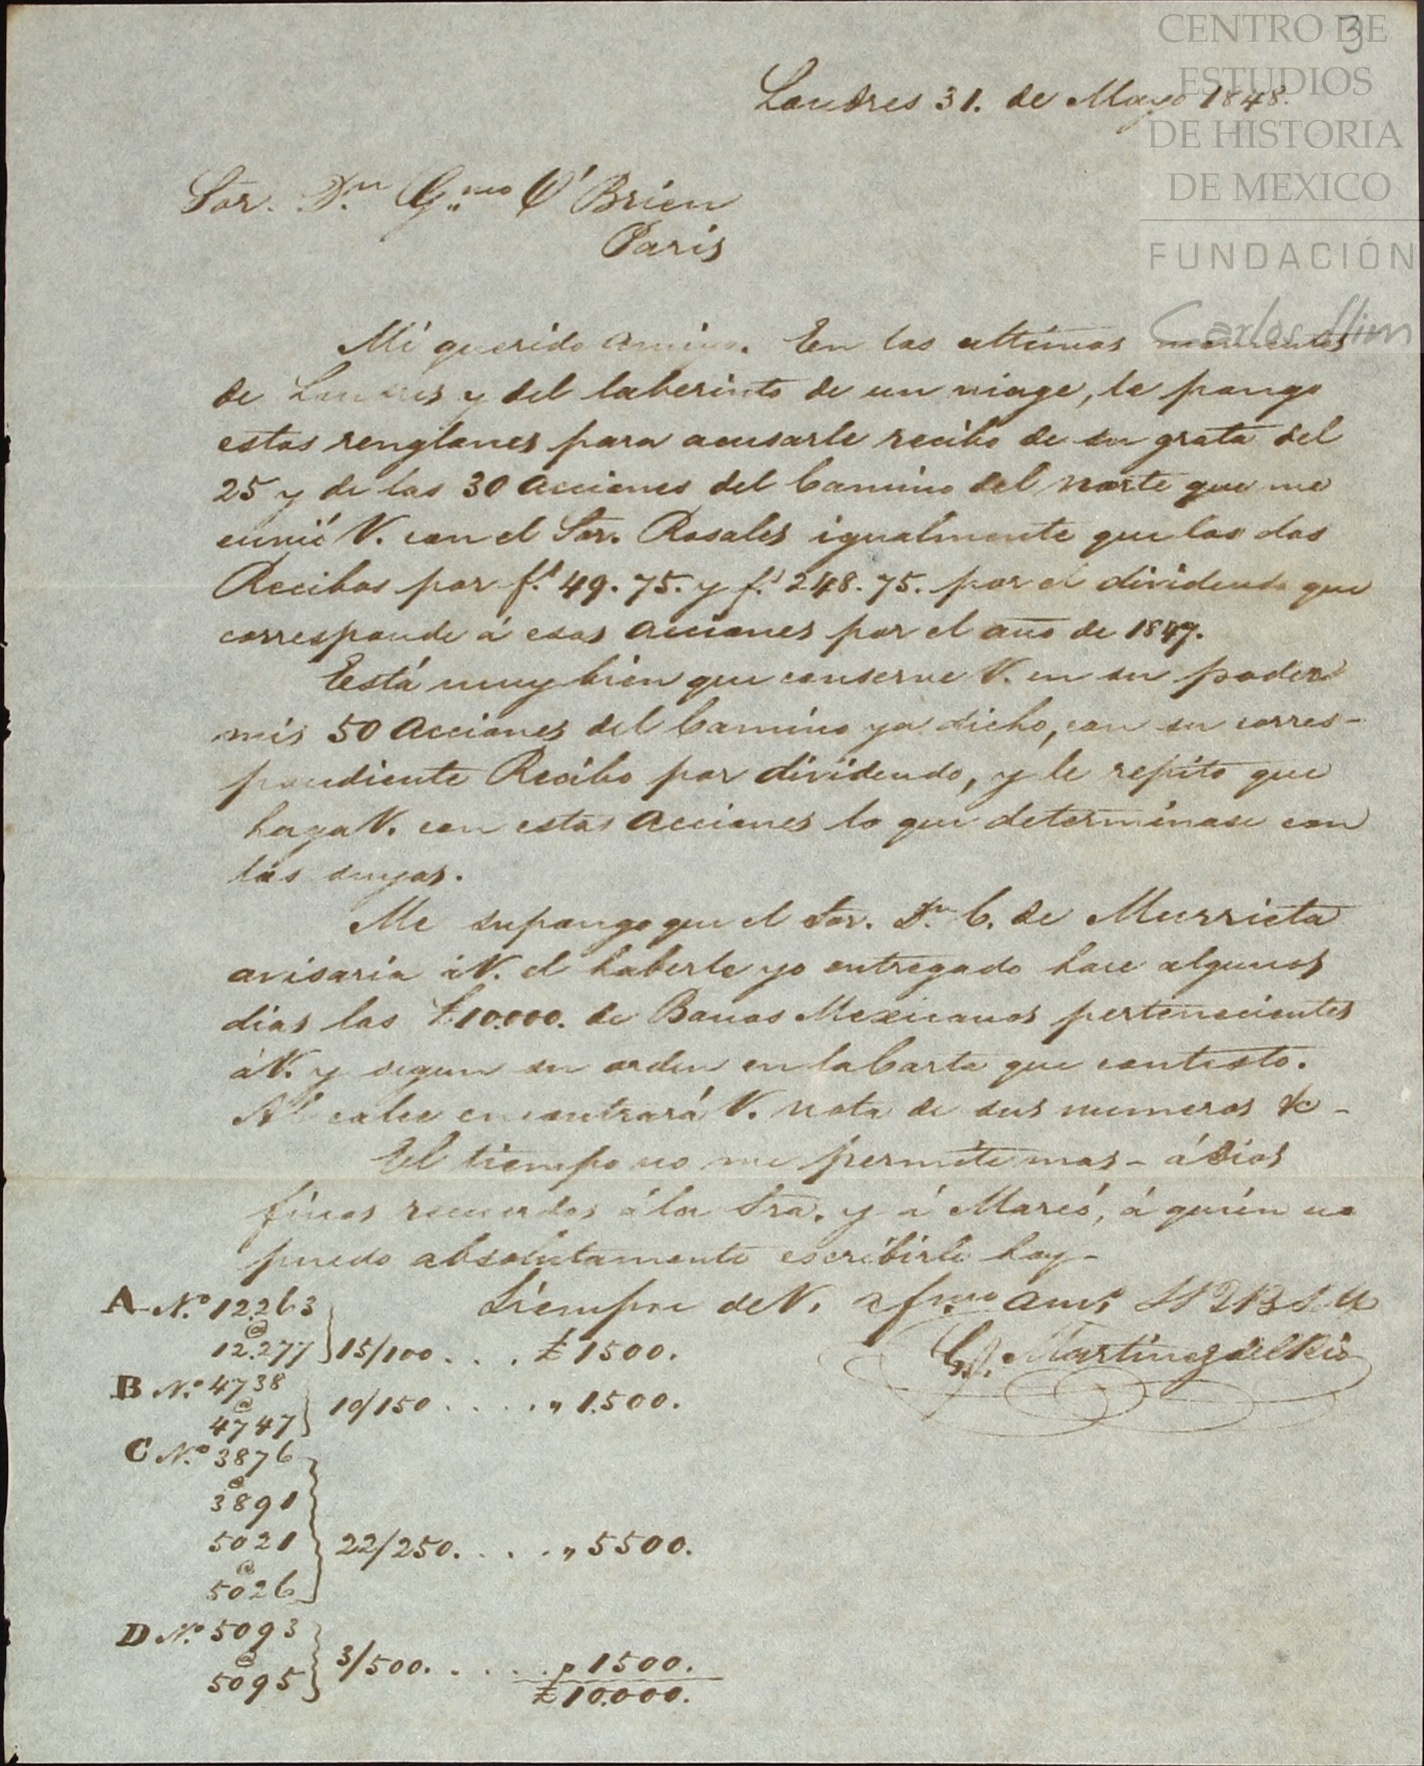 CENTRO DE
ESTUDIOS
DE HISTORIA
DE MEXICO
FUNDACIÓN
Carlos Slim
3
Londres 31. de Mayo 1848.
Sor. Dn. G.mo O'Brien
Paris
Mi querido amigo. En los ultimos momentos
de Londres y del laberinto de un viage, le pongo
estos renglones para acusarle recibo de su grata del
25 y de las 30 Acciones del Camino del Norte que me
envió V. con el Sor. Rosales igualmente que los dos
Recibos por f.s 49.75. y f.s 248.75. por el dividendo que
corresponde á esas Acciones por el año de 1847.
Está muy bien que conserve V. en su poder
mis 50 Acciones del Camino ya dicho, con su corres-
pondiente Recibo por dividendo, y le repito que
haga V. con estas Acciones lo que determinase con
las suyas.
Me supongo que el Sor. Dn. C. de Murrieta
avisaria á V. el haberle yo entregado hace algunos
dias las £10.000. de Bonos Mexicanos pertenecientes
á V. y segun su orden en la Carta que contesto.
Al calce encontrará V. nota de sus numeros &c -
El tiempo no me permite mas - ádios
finos recuerdos á la Sra. y á Marcó, á quién no
puedo absolutamente escribirle hoy -
Siempre de V. afmo amo.
G. J. Martinez del Rio
A N.o 12.263
@
12.277 } 15/100 . . . . £ 1500.
B N.o 4738
@
4747 } 10/150 . . . . . „ 1.500.
C N.o 3876
@
3891
5021 } 22/250. . . . . „ 5500.
@
5026
D N.o 5093
@
5095 } 3/500. . . . . „ 1500.
£ 10.000.